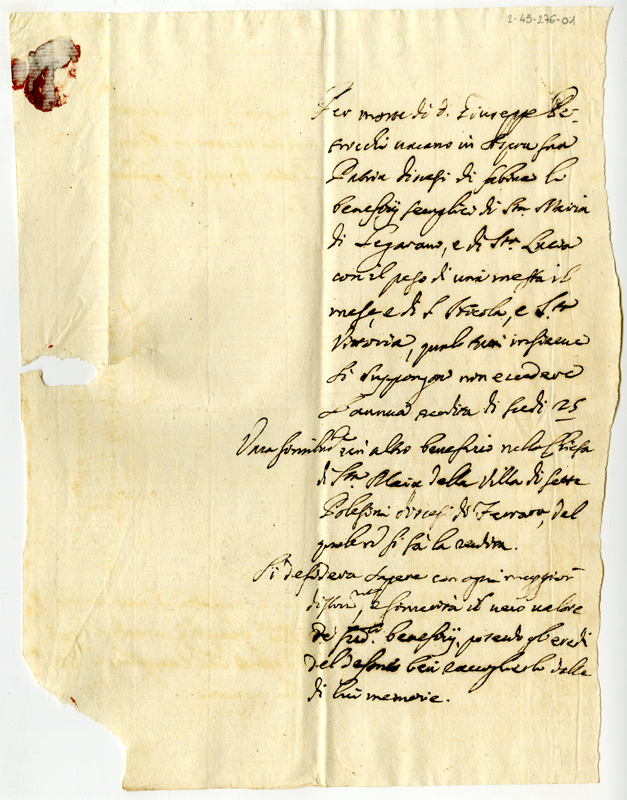 2-45-276-01
Per morte di d. Giuseppe Be-
vacano in sua
Patria diocesi di Sabina li
beneficij semplici di Sta. Maria
di Legarano, e di Sta. Lucia
con il peso di una messa il
mese, e di S. Nicola, e Sta.
Vittoria, quali tutti insieme
si suppongon non eccedere
l'annua rendita di scudi 25
Vaca un altro beneficio nella Chiesa
di Sta. Maria della Villa di Sette
Polesini diocesi di Ferrara, del
si fa la rendita.
Si desidera sapere con ogni maggior
e sincerità il vero valore
de beneficij, potendo gl'eredi
del defonto ben raccoglierlo dalle
di lui memorie.